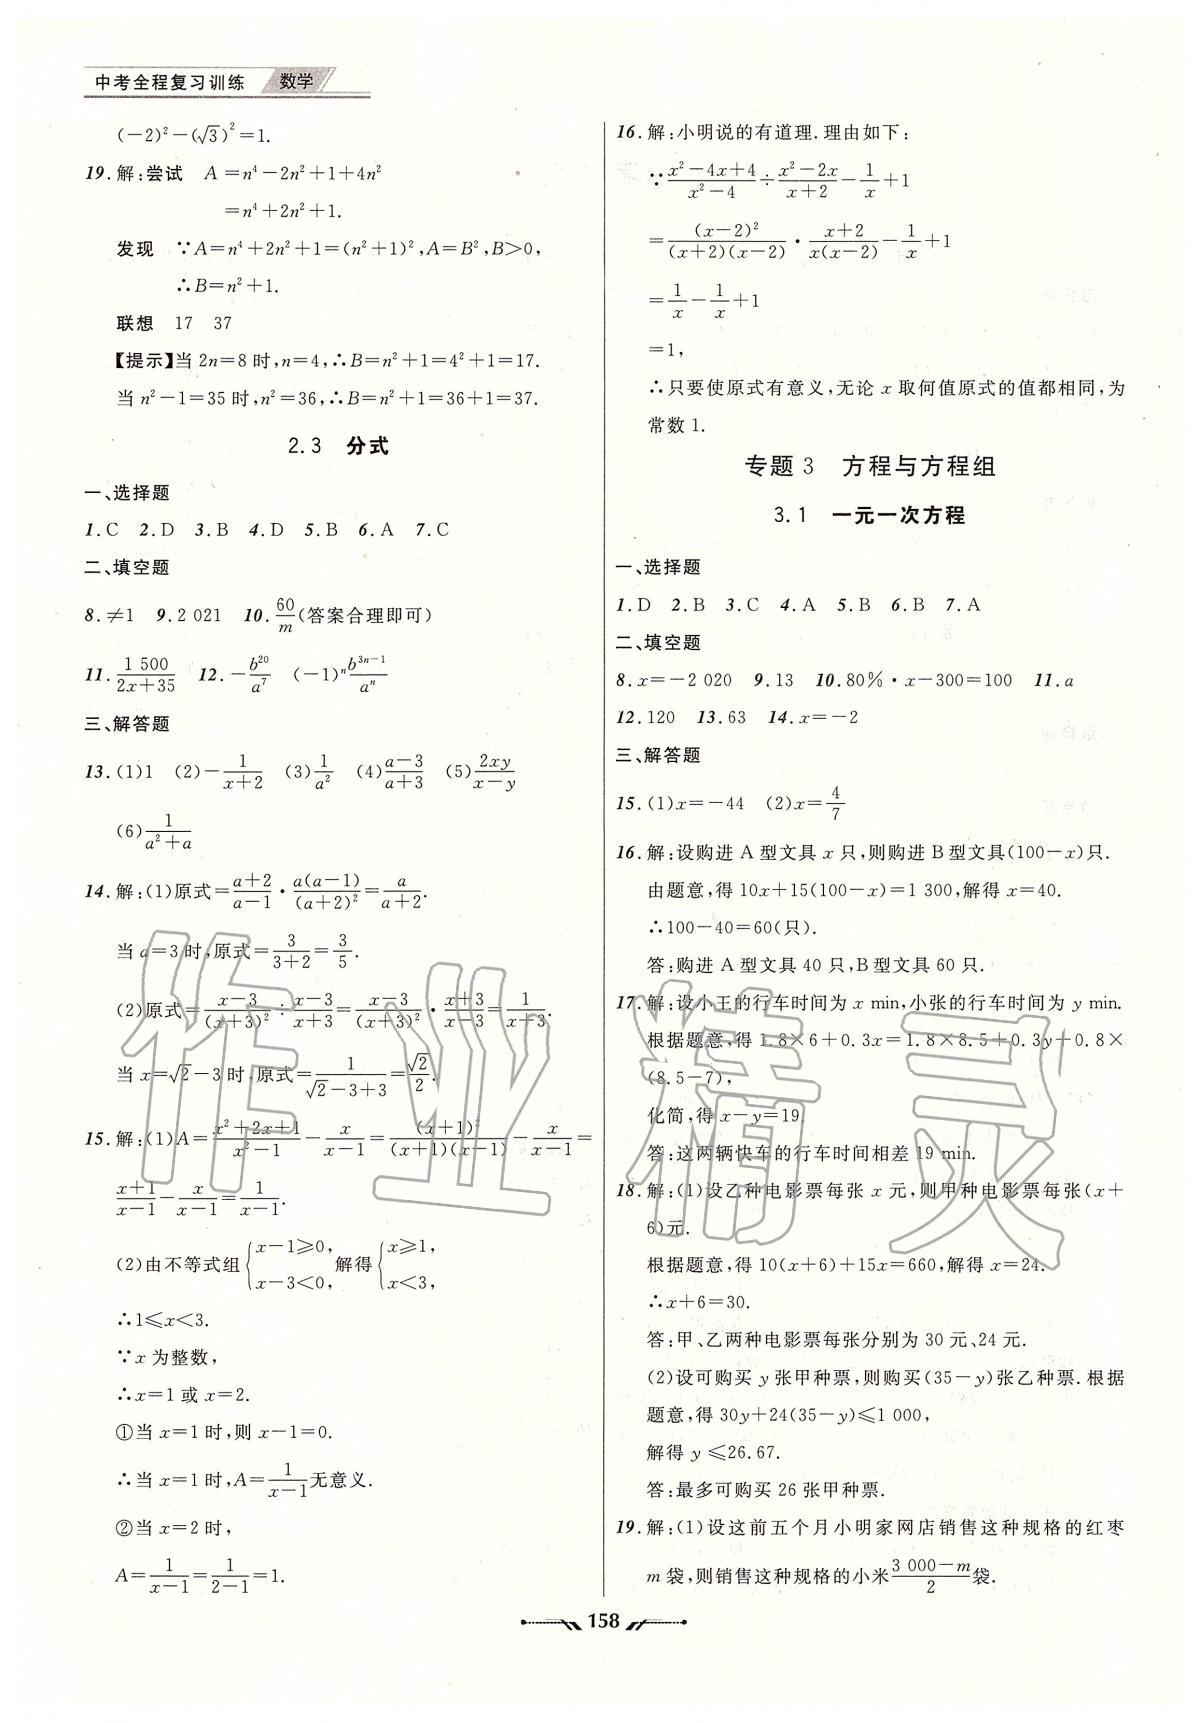 中考全程复习训练 数学
(-2)²-(√3)²=1.
19.解:尝试 A=n⁴-2n²+1+4n²
=n⁴+2n²+1.
发现 ∵A=n⁴+2n²+1=(n²+1)²,A=B²,B>0,
∴B=n²+1.
联想 17 37
【提示】当 2n=8 时,n=4,∴B=n²+1=4²+1=17.
当 n²-1=35 时,n²=36,∴B=n²+1=36+1=37.
2.3 分式
一、选择题
1.C 2.D 3.B 4.D 5.B 6.A 7.C
二、填空题
8.≠1 9.2 021 10.60/m(答案合理即可)
11.1 500/(2x+35) 12.-b²⁰/a⁷ (-1)ⁿb³ⁿ⁻¹/aⁿ
三、解答题
13.(1)1 (2)-1/(x+2) (3)1/a² (4)(a-3)/(a+3) (5)2xy/(x-y)
(6)1/(a²+a)
14.解:(1)原式=(a+2)/(a-1)·a(a-1)/(a+2)²=a/(a+2).
当 a=3 时,原式=3/(3+2)=3/5.
(2)原式=(x-3)/(x+3)²÷(x-3)/(x+3)=(x-3)/(x+3)²·(x+3)/(x-3)=1/(x+3).
当 x=√2-3 时,原式=1/(√2-3+3)=√2/2.
15.解:(1)A=(x²+2x+1)/(x²-1)-x/(x-1)=(x+1)²/(x+1)(x-1)-x/(x-1)=
(x+1)/(x-1)-x/(x-1)=1/(x-1).
(2)由不等式组{x-1≥0, x-3<0, 解得{x≥1, x<3,
∴1≤x<3.
∵x 为整数,
∴x=1 或 x=2.
①当 x=1 时,则 x-1=0.
∴当 x=1 时,A=1/(x-1)无意义.
②当 x=2 时,
A=1/(x-1)=1/(2-1)=1.
16.解:小明说的有道理.理由如下:
∵(x²-4x+4)/(x²-4)÷(x²-2x)/(x+2)-1/x+1
=(x-2)²/(x+2)(x-2)·(x+2)/x(x-2)-1/x+1
=1/x-1/x+1
=1,
∴只要使原式有意义,无论 x 取何值原式的值都相同,为
常数 1.
专题 3 方程与方程组
3.1 一元一次方程
一、选择题
1.D 2.B 3.C 4.A 5.B 6.B 7.A
二、填空题
8.x=-2 020 9.13 10.80%·x-300=100 11.a
12.120 13.63 14.x=-2
三、解答题
15.(1)x=-44 (2)x=4/7
16.解:设购进 A 型文具 x 只,则购进 B 型文具(100-x)只.
由题意,得 10x+15(100-x)=1 300,解得 x=40.
∴100-40=60(只).
答:购进 A 型文具 40 只,B型文具 60 只.
17.解:设小王的行车时间为 x min,小张的行车时间为 y min.
根据题意,得 1.8×6+0.3x=1.8×8.5+0.3y+0.8×
(8.5-7),
化简,得 x-y=19.
答:这两辆快车的行车时间相差 19 min.
18.解:(1)设乙种电影票每张 x 元,则甲种电影票每张(x+
6)元.
根据题意,得 10(x+6)+15x=660,解得 x=24.
∴x+6=30.
答:甲、乙两种电影票每张分别为 30 元、24 元.
(2)设可购买 y 张甲种票,则购买(35-y)张乙种票.根据
题意,得 30y+24(35-y)≤1 000,
解得 y≤26.67.
答:最多可购买 26 张甲种票.
19.解:(1)设这前五个月小明家网店销售这种规格的红枣
m 袋,则销售这种规格的小米(3 000-m)/2袋.
158
作业精灵